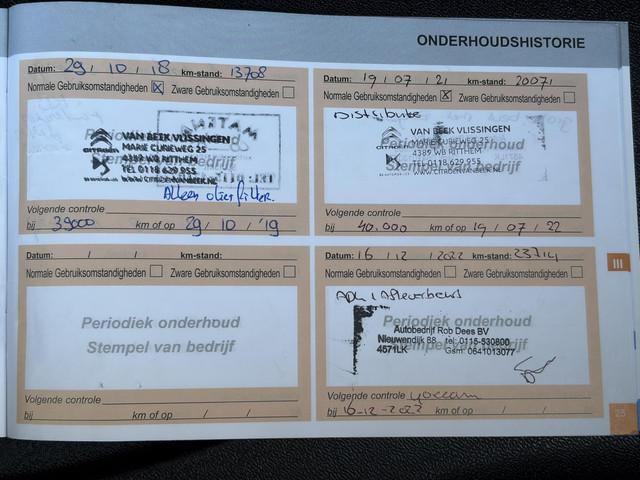 ONDERHOUDSHISTORIE
Datum: 29 / 10 / 18 km-stand: 13708
Normale Gebruiksomstandigheden X Zware Gebruiksomstandigheden
Periodiek onderhoud
Stempel van bedrijf
VAN BEEK VLISSINGEN
MARIE CURIEWEG 25
4389 WB RITTHEM
TEL 0118 629 955
WWW.CITROENVANBEEK.NL
CITROËN
Alleen oliefilter.
Volgende controle
bij 39000 km of op 29 / 10 / '19
Datum: 19 / 07 / 21 km-stand: 20071
Normale Gebruiksomstandigheden X Zware Gebruiksomstandigheden
Distributie
Periodiek onderhoud
Stempel van bedrijf
VAN BEEK VLISSINGEN
MARIE CURIEWEG 25
4389 WB RITTHEM
TEL 0118 629 955
WWW.CITROENVANBEEK.NL
Volgende controle
bij 40.000 km of op 19 / 07 / 22
Datum: / / km-stand:
Normale Gebruiksomstandigheden Zware Gebruiksomstandigheden
Periodiek onderhoud
Stempel van bedrijf
Volgende controle
bij km of op / /
Datum: 16 / 12 / 2022 km-stand: 23714
Normale Gebruiksomstandigheden Zware Gebruiksomstandigheden
Periodiek onderhoud
Stempel van bedrijf
Autobedrijf Rob Dees BV
Nieuwendijk 88 tel: 0115-530800
4571LK Gsm: 0641013077
Volgende controle
bij 16-12-2023 km of op / /
III
25